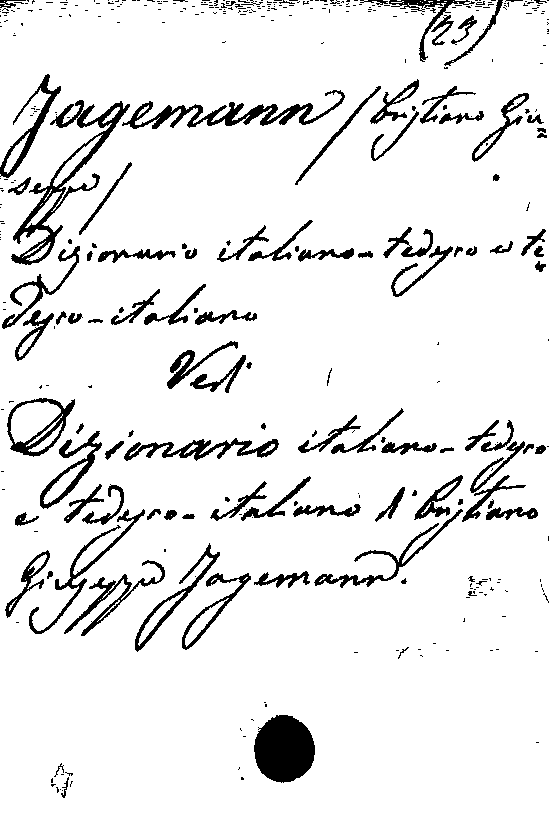 (23)
Jagemann / Cristiano Giu=
seppe /
Dizionario italiano-tedesco e te=
desco-italiano
Vedi
Dizionario italiano-tedesco
e tedesco-italiano di Cristiano
Giuseppe Jagemann.